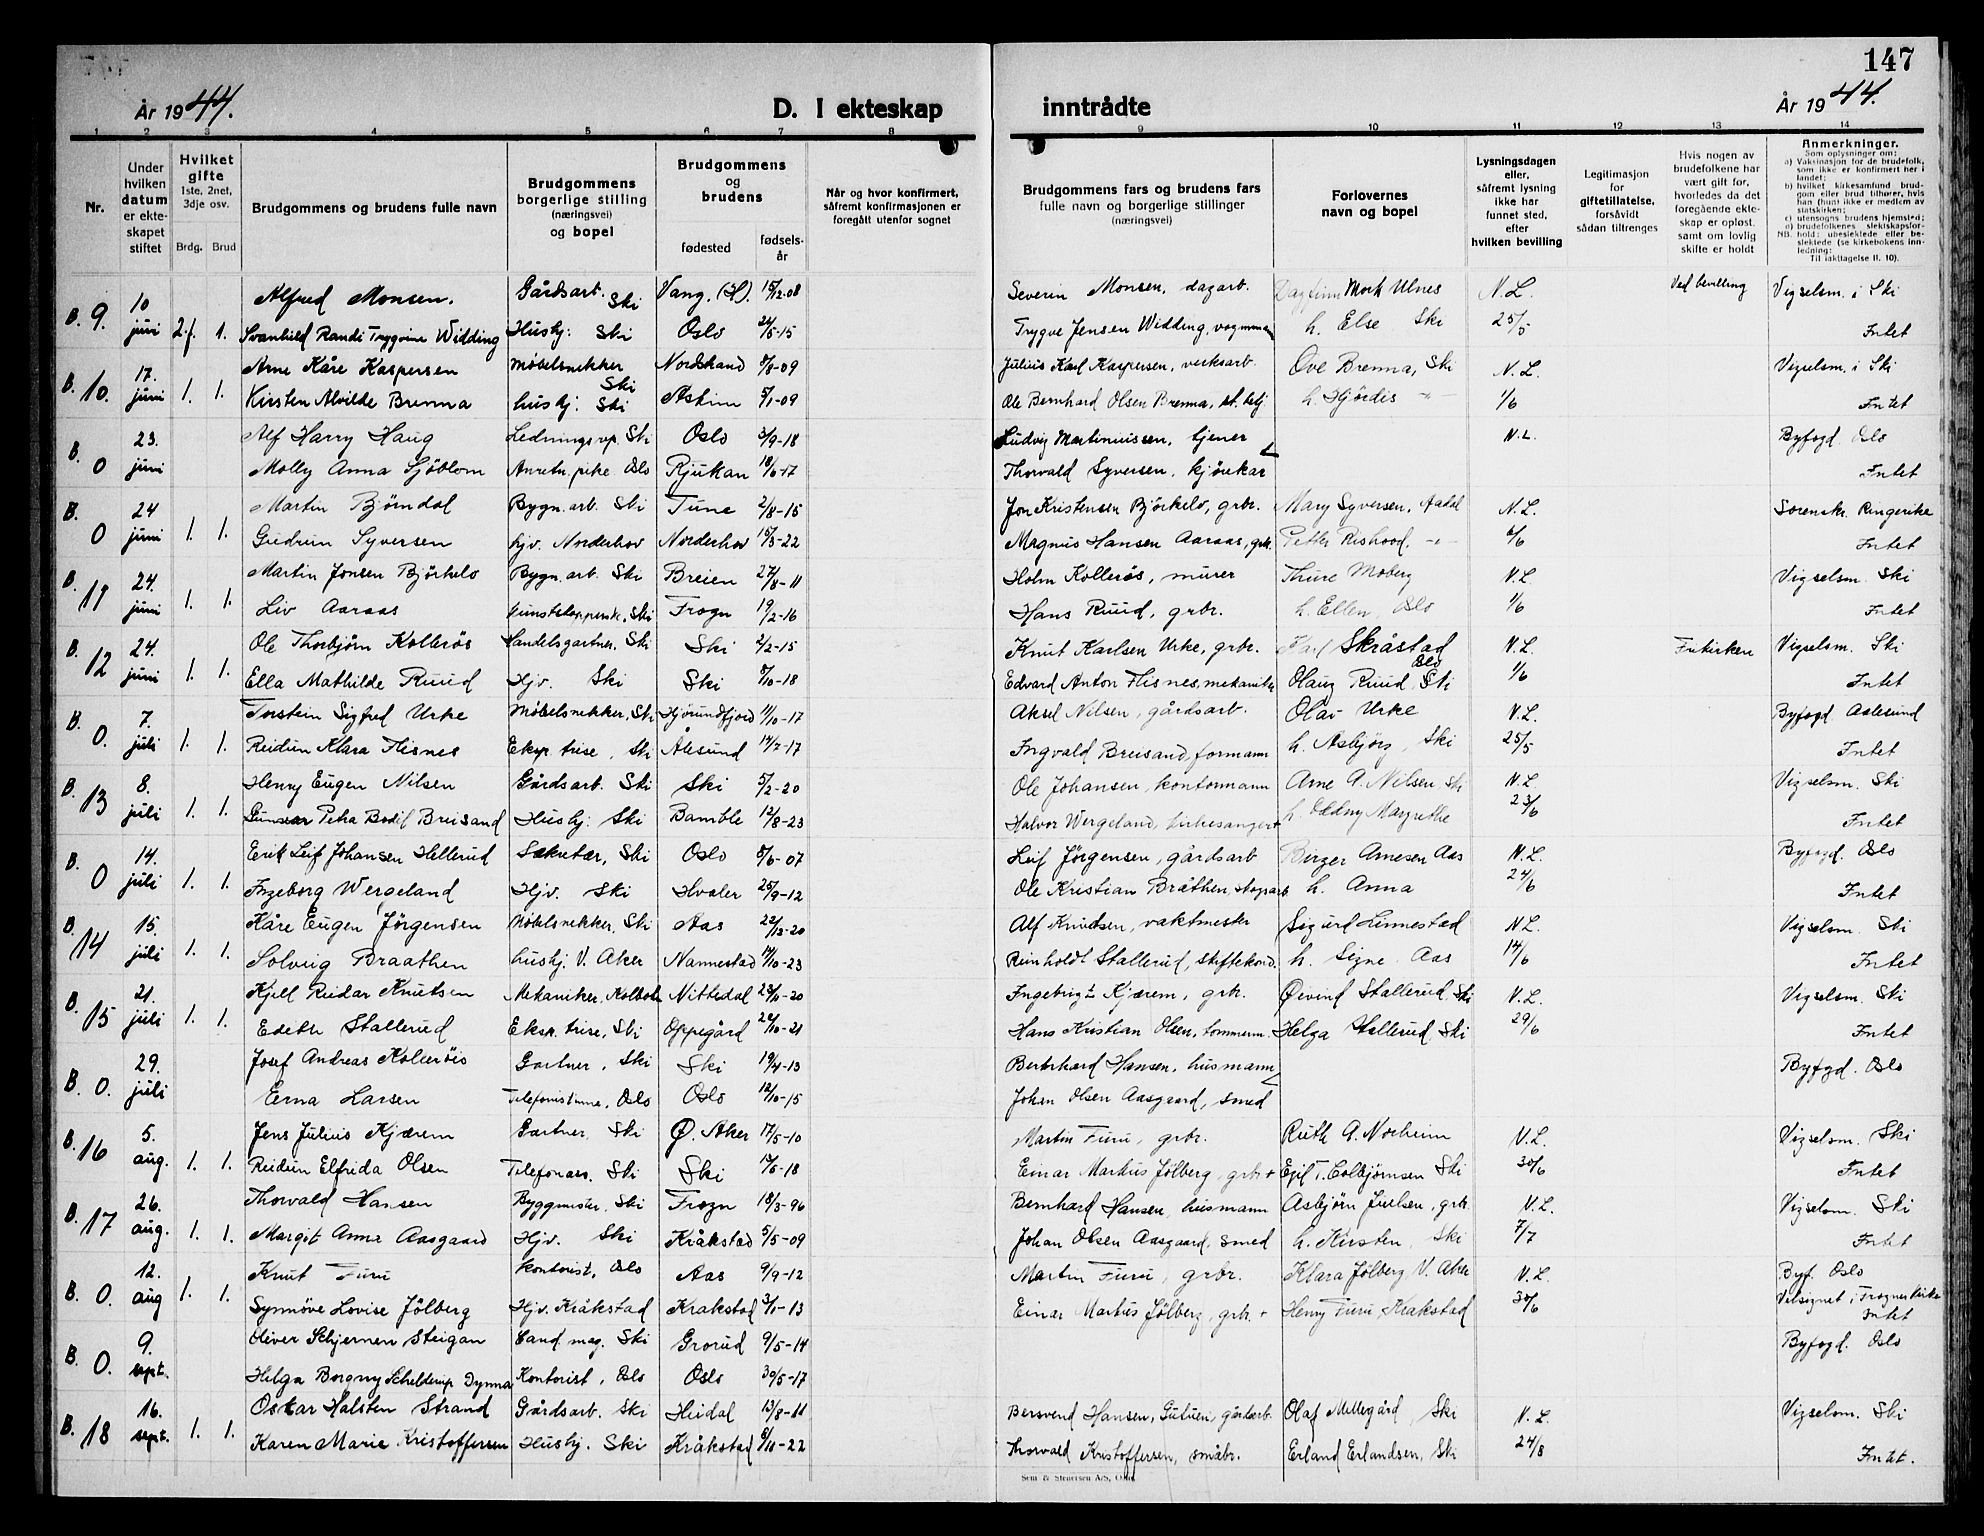 147
År 1944.
D. I ekteskap inntrådte
År 1944.
1 2 3 4 5 6 7 8 9 10 11 12 13 14
Nr.
Under hvilken datum er ekteskapet stiftet
Hvilket gifte 1ste, 2net, 3dje osv.
Brdg. Brud
Brudgommens og brudens fulle navn
Brudgommens borgerlige stilling (næringsvei) og bopel
Brudgommens og brudens
fødested fødsels-år
Når og hvor konfirmert, såfremt konfirmasjonen er foregått utenfor sognet
Brudgommens fars og brudens fars fulle navn og borgerlige stillinger (næringsvei)
Forlovernes navn og bopel
Lysningsdagen eller, såfremt lysning ikke har funnet sted, efter hvilken bevilling
Legitimasjon for giftetillatelse, forsåvidt sådan tiltrenges
Hvis nogen av brudefolkene har vært gift før, hvorledes da det foregående ekteskap er opløst, samt om lovlig skifte er holdt
Anmerkninger.
Som oplysninger om:
a) Vaksinasjon for de brudefolk, som ikke er konfirmert her i landet;
b) hvilket kirkesamfund brudgom eller brud tilhører, hvis han (hun) ikke er medlem av statskirken;
c) utensogns brudens hjemsted;
d) brudefolkenes slektskapsforhold: ubeslektede eller beslektede (se kirkebokens innledning:
NB. Til iakttagelse II. 10).
B. 9. 10 Alfred Monsen. Gårdsart. Ski Vang. (H). 15/12-08 Severin Monsen, dagart. Dagfinn Mork Ulnes N.L. Ved bevilling Vigselsm. i Ski
juni 2.f. 1. Svanhild Randi Trygvine Widding Husbj: Ski Oslo 24/5-15 Trygve Jensen Widding, h. Else Ski 25/5 Intet
B. 10. 17. Arne Kåre Kaspersen Møbelsnekker Ski Nordstrand 8/8-09 Julius Karl Kaspersen, verksarb. Ove Brenna, Ski N.L. Vigselsm. i Ski
juni 1. 1. Kirsten Alvilde Brenna husbj: Ski Askim 5/1-09 Ole Bernhard Olsen Brenna, h. Hjördis -"- 1/6 Intet
B. 0 23. Alf Harry Haug Ledningsrep. Ski Oslo 3/9-18 Ludvig Martinuissen, tjener N.L. Byfogd. Oslo
juni Molly Anna Sjöblom Anretn. pike Oslo Rjukan 18/6-17 Thorvald Syversen, kjörekar Intet
B. 0 24 Martin Bjørndal Bygn. arb. Ski Tune 2/8-15 Jon Kristensen Björkelo, grbr. Mary Syversen, Aadal N.L. Sorenskr. Ringerike
juni 1. 1. Gudrun Syversen hjv. Norderhov Norderhov 15/3-22 Magnus Hansen Aaraas, grk. Petter Rishood, -"- 6/6 Intet
B. 11 24. Martin Jonsen Björkelo Bygn. art. Ski Breien 27/8-11 Holm Kolleròs, murer Thure Moberg N.L. Vigselsm. Ski
juni 1. 1. Liv Aaraas Ski Frogn 19/2-16 Hans Ruud, grbr. h. Ellen, Oslo 1/6 Intet
B. 12 24. Ole Thorbjørn Kolleròs Handelsgartner, Ski Ski 2/2-15 Knut Karlsen Urke, grbr. Karl Skråstad Oslo N.L. Frikirken Vigselsm. Ski
juni 1. 1. Ella Mathilde Ruud Hjv. Ski Ski 8/10-18 Edvard Anton Flisnes, mekaniker Olaug Ruud, Ski 1/6 Intet
B. 0. 7. Torstein Sigfred Urke Møbelsnekker, Ski Hjörundfjord 11/10-17 Aksel Nilsen, gårdsart. Olav Urke N.L. Byfogd Aalesund
juli 1. 1. Reidun Klara Flisnes Eksp. trise, Ski Ålesund 14/7-17 Ingvald Breisand, formann h. Asbjörg, Ski 25/5 Intet
B. 13 8. Henry Eugen Nilsen Gårdsart. Ski Ski 5/2-20 Ole Johansen, kontormann Arne A. Nilsen Ski N.L. Vigselsm. Ski
juli 1. 1. Gunvor Petra Bodil Breisand Husbj: Ski Bamble 12/8-23 Halvor Wergeland, kirkesanger h. Oddny Margrethe 23/6 Intet
B. 0 14. Eerik Leif Johansen Hellerud Sekretær, Ski Oslo 8/6-07 Leif Jörgensen, gårdsart Birger Arnesen Aas N.L. Byfogd. Oslo
juli 1. 1. Ingeborg Wergeland Hjv. Ski Hvaler 25/9-12 Ole Kristian Bråthen, skogsarb. h. Anna 24/6 Intet
B. 14 15. Kåre Eugen Jörgensen Møbelsnekker, Ski Aas 22/12-20 Alf Knudsen, vaktmester Sigurd Linnestad N.L. Vigselsm. Ski
juli 1. 1. Solveig Braathen husbj. V. Aker Nannestad 14/10-23 Reinholdt Stallerud, skiftekond. h. Signe Aas 14/6 Intet
B. 15 21. Kjell Reidar Knutsen Mekaniker, Kolbotn Nittedal 24/11-20 Ingebrigt Kjærem, grk. Øivind Stallerud Ski N.L. Vigselsm. Ski
juli 1. 1. Edith Stallerud Eksp. trise, Ski Oppegård 26/10-21 Hans Kristian Olsen, tømmerm. Helga Stallerud, Ski 29/6 Intet
B. 0. 29. Josef Andreas Kolleròs Gartner, Ski Ski 19/4-13 Bernhard Hansen, husmann Byfogd. Oslo
juli Erna Larsen Telefonistinne, Oslo Oslo 12/10-15 Johan Olsen Aasgaard, smed
B. 16 5. Jens Julius Kjærem Gartner, Ski Ø. Aker 17/5-10 Martin Furu, grbr. Ruth A. Norheim N.L. Vigselsm. Ski
aug. 1. 1. Reidun Elfrida Olsen Telefonass. Ski Ski 19/5-18 Einar Markus Jölberg, grbr. + Egil T. Colbjørnsen Ski 30/6 Intet
B. 17 26. Thorvald Hansen Byggmester, Ski Frogn 18/3-96 Bernhard Hansen, husmann Asbjörn Juelsen, grk. N.L. Vigselsm. Ski
aug. 1. 1. Margit Anna Aasgaard Hjv. Ski Kråkstad 5/5-09 Johan Olsen Aasgaard, smed h. Kirsten, Ski 7/7 Intet
B. 0. 12. Knut Furu Kontorist, Oslo Aas 9/9-12 Martin Furu, grbr. Klara Jölberg V. Aker N.L. Byf. Oslo
aug 1. 1. Synnöve Lovise Jölberg Hjv. Kråkstad Kråkstad 3/1-13 Einar Markus Jölberg, grk. + Henry Furu Kråkstad 30/6 Velsignet i Frogner kirke
Intet
B. 0. 9. Oliver Schjernen Steigan Cand mag. Ski Grorud 9/5-14 Byfogd. Oslo
sept. Helga Borgny Schelderup Dynna Kontorist, Oslo Oslo 30/5-17
B. 18 16. Oskar Halsten Strand Gårdsart. Ski Heidal 13/8-11 Bersvend Hansen, gårdarb. Olaf Mellegård, Ski N.L. Vigselsm. Ski
sept. 1. 1. Karen Marie Kristoffersen Husbj. Ski Kråkstad 8/11-22 Thorvald Kristoffersen, småbr. Erland Erlandsen, Ski 24/8 Intet.
Sem & Stenersen A/S, Oslo